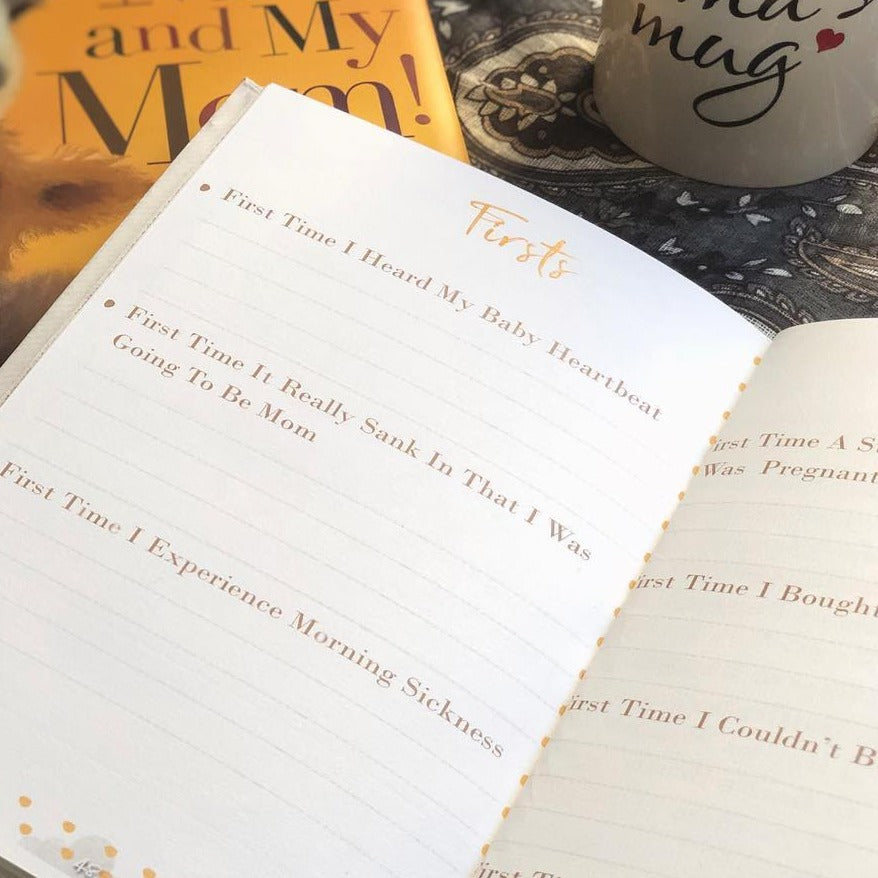 and My
Mom!
mug
Firsts
First Time I Heard My Baby Heartbeat
First Time It Really Sank In That I Was
Going To Be Mom
First Time I Experience Morning Sickness
48
First Time A
Was Pregnant
First Time I Bought
First Time I Couldn't
First